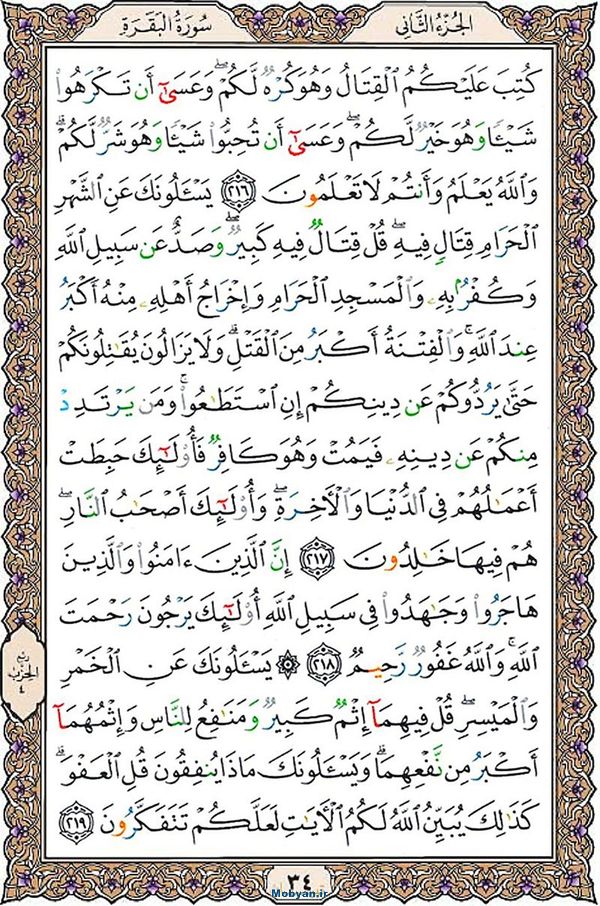 سُورَةُ البَقَرَةِ
الجُزْءُ الثَّانِي
كُتِبَ عَلَيْكُمُ ٱلْقِتَالُ وَهُوَ كُرْهٌ لَّكُمْ ۖ وَعَسَىٰٓ أَن تَكْرَهُوا۟
شَيْـًٔا وَهُوَ خَيْرٌ لَّكُمْ ۖ وَعَسَىٰٓ أَن تُحِبُّوا۟ شَيْـًٔا وَهُوَ شَرٌّ لَّكُمْ ۗ
وَٱللَّهُ يَعْلَمُ وَأَنتُمْ لَا تَعْلَمُونَ ﴿٢١٦﴾ يَسْـَٔلُونَكَ عَنِ ٱلشَّهْرِ
ٱلْحَرَامِ قِتَالٍ فِيهِ ۖ قُلْ قِتَالٌ فِيهِ كَبِيرٌ ۖ وَصَدٌّ عَن سَبِيلِ ٱللَّهِ
وَكُفْرٌۢ بِهِۦ وَٱلْمَسْجِدِ ٱلْحَرَامِ وَإِخْرَاجُ أَهْلِهِۦ مِنْهُ أَكْبَرُ
عِندَ ٱللَّهِ ۚ وَٱلْفِتْنَةُ أَكْبَرُ مِنَ ٱلْقَتْلِ ۗ وَلَا يَزَالُونَ يُقَـٰتِلُونَكُمْ
حَتَّىٰ يَرُدُّوكُمْ عَن دِينِكُمْ إِنِ ٱسْتَطَـٰعُوا۟ ۚ وَمَن يَرْتَدِدْ
مِنكُمْ عَن دِينِهِۦ فَيَمُتْ وَهُوَ كَافِرٌ فَأُو۟لَـٰٓئِكَ حَبِطَتْ
أَعْمَـٰلُهُمْ فِى ٱلدُّنْيَا وَٱلْـَٔاخِرَةِ ۖ وَأُو۟لَـٰٓئِكَ أَصْحَـٰبُ ٱلنَّارِ ۖ
هُمْ فِيهَا خَـٰلِدُونَ ﴿٢١٧﴾ إِنَّ ٱلَّذِينَ ءَامَنُوا۟ وَٱلَّذِينَ
هَاجَرُوا۟ وَجَـٰهَدُوا۟ فِى سَبِيلِ ٱللَّهِ أُو۟لَـٰٓئِكَ يَرْجُونَ رَحْمَتَ
ٱللَّهِ ۚ وَٱللَّهُ غَفُورٌ رَّحِيمٌ ﴿٢١٨﴾ ۞ يَسْـَٔلُونَكَ عَنِ ٱلْخَمْرِ
وَٱلْمَيْسِرِ ۖ قُلْ فِيهِمَآ إِثْمٌ كَبِيرٌ وَمَنَـٰفِعُ لِلنَّاسِ وَإِثْمُهُمَآ
أَكْبَرُ مِن نَّفْعِهِمَا ۗ وَيَسْـَٔلُونَكَ مَاذَا يُنفِقُونَ قُلِ ٱلْعَفْوَ ۗ
كَذَٰلِكَ يُبَيِّنُ ٱللَّهُ لَكُمُ ٱلْـَٔايَـٰتِ لَعَلَّكُمْ تَتَفَكَّرُونَ ﴿٢١٩﴾
ربع
الحزب
٤
٣٤
Mobyan.ir